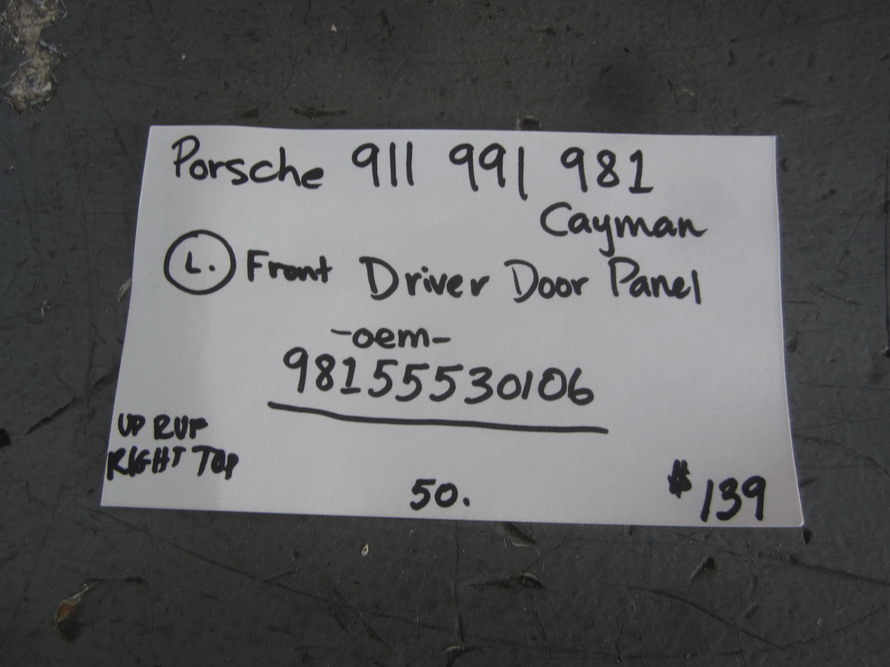 Porsche 911 991 981
Cayman
L. Front Driver Door Panel
-oem-
98155530106
UP RUF
RIGHT TOP
50.
$139